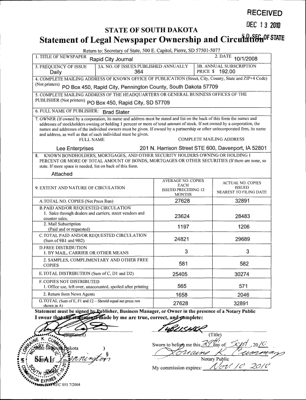 RECEIVED
DEC 13 2010
S.D. SEC. OF STATE
STATE OF SOUTH DAKOTA
Statement of Legal Newspaper Ownership and Circulation
Return to: Secretary of State, 500 E. Capitol, Pierre, SD 57501-5077
1. TITLE OF NEWSPAPER Rapid City Journal
2. DATE 10/1/2008
3. FREQUENCY OF ISSUE Daily
3A. NO. OF ISSUES PUBLISHED ANNUALLY 364
3B. ANNUAL SUBSCRIPTION PRICE $ 192.00
4. COMPLETE MAILING ADDRESS OF KNOWN OFFICE OF PUBLICATION (Street, City, County, State and ZIP+4 Code) (Not Printers)
PO Box 450, Rapid City, Pennington County, South Dakota 57709
5. COMPLETE MAILING ADDRESS OF THE HEADQUARTERS OR GENERAL BUSINESS OFFICES OF THE PUBLISHER (Not printers)
PO Box 450, Rapid City, SD 57709
6. FULL NAME OF PUBLISHER: Brad Slater
7. OWNER (If owned by a corporation, its name and address must be stated and also immediately
addresses of stockholders owning or holding 1 percent or more of total amount of stock. If not owned by a corporation, the
names and addresses of the individual owners must be given. If owned by a partnership or other unincorporated firm, its name
and address, as well as that of each individual must be given.
FULL NAME COMPLETE MAILING ADDRESS
Lee Enterprises 201 N. Harrison Street STE 600, Davenport, IA 52801
8. KNOWN BONDHOLDERS, MORTGAGES, AND OTHER SECURITY HOLDERS OWNING OR HOLDING 1
PERCENT OR MORE OF TOTAL AMOUNT OF BONDS, MORTGAGES OR OTHER SECURITIES (If there are none, so
state. If more space is needed, list on back of this form.
Attached
9. EXTENT AND NATURE OF CIRCULATION
AVERAGE NO. COPIES EACH ISSUED PRECEDING 12 MONTHS
ACTUAL NO. COPIES ISSUED NEAREST TO FILING DATE
A. TOTAL NO. COPIES (Net Press Run) 27628 32891
B. PAID AND/OR REQUESTED CIRCULATION
1. Sales through dealers and carriers, street vendors and counter sales. 23624 28483
2. Mail Subscription (Paid and or requested) 1197 1206
C. TOTAL PAID AND/OR REQUESTED CIRCULATION (Sum of 9B1 and 9B2) 24821 29689
D. FREE DISTRIBUTION
1. BY MAIL, CARRIER OR OTHER MEANS 3 3
2. SAMPLES, COMPLIMENTARY AND OTHER FREE COPIES 581 582
E. TOTAL DISTRIBUTION (Sum of C, D1 and D2) 25405 30274
F. COPIES NOT DISTRIBUTED
1. Office use, left over, unaccounted, spoiled after printing 565 571
2. Return from News Agents 1658 2046
G. TOTAL (Sum of E, F1 and F2 – Should equal net press run shown in A) 27628 32891
Statement must be signed by Publisher, Business Manager, or Owner in the presence of a Notary Public
I swear that the statements made by me are true, correct, and complete:
Publisher
(Title)
SEAL
Notary Public
My commission expires: